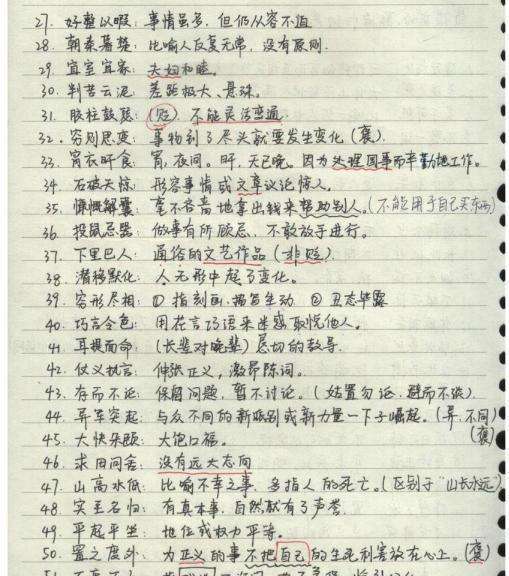 27. 好整以暇: 事情虽多, 但仍从容不迫
28. 朝秦暮楚: 比喻人反复无常, 没有原则.
29. 宜室宜家: 夫妇和睦。
30. 判若云泥: 差距极大、悬殊。
31. 胶柱鼓瑟: (贬) 不能灵活变通
32. 穷则思变: 事物到了尽头就要发生变化 (褒).
33. 宵衣旰食: 宵, 夜间。旰, 天已晚。因为处理国事而辛勤地工作。
34. 石破天惊: 形容事情或文章议论惊人。
35. 慷慨解囊: 毫不吝啬地拿出钱来帮助别人。(不能用于自己买东西)
36. 投鼠忌器: 做事有所顾忌, 不敢放手进行。
37. 下里巴人: 通俗的文艺作品 (非贬)
38. 潜移默化: 人无形中起了变化。
39. 穷形尽相: ① 指刻画、描写生动 ② 丑态毕露
40. 巧言令色: 用花言巧语来迷惑取悦他人。
41. 耳提面命: (长辈对晚辈) 恳切的教导.
42. 仗义执言: 伸张正义, 激昂陈词。
43. 存而不论: 保留问题, 暂不讨论。(姑置勿论, 避而不谈).
44. 异军突起: 与众不同的新派别或新力量一下子崛起。(异, 不同) (褒)
45. 大快朵颐: 大饱口福。
46. 求田问舍: 没有远大志向
47. 山高水低: 比喻不幸之事, 多指人的死亡。(区别于"山长水远")
48. 实至名归: 有真本事, 自然就有了声誉.
49. 平起平坐: 地位或权力平等。
50. 置之度外: 为正义的事不把自己的生死利害放在心上。(褒)